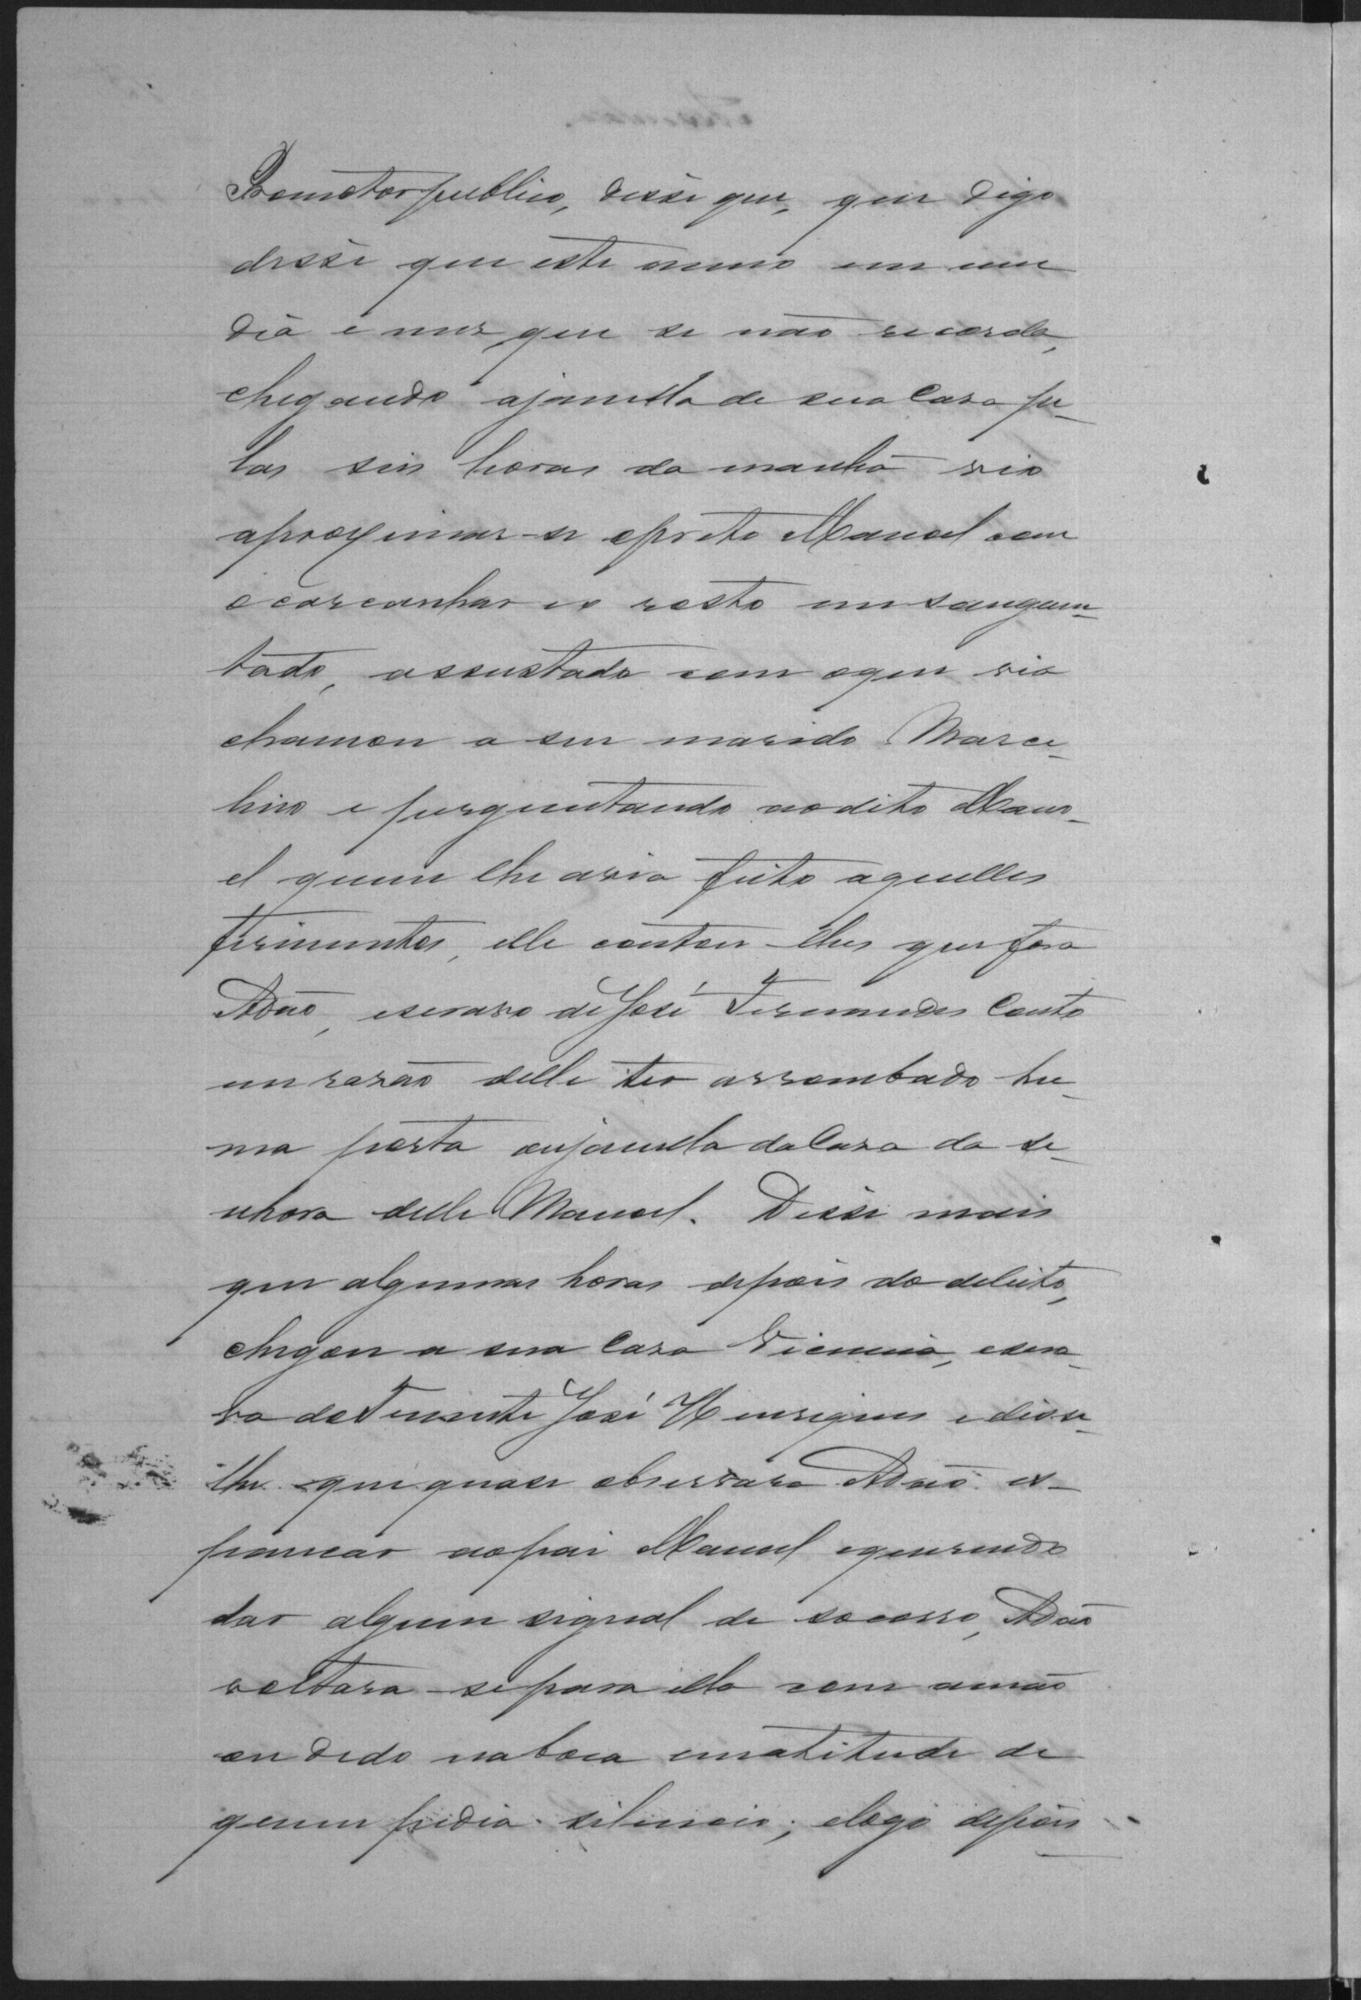 Promotor publico, disse que, que digo
disse que este anno em um
dia e mez que se não recorda,
chegando ajanella de sua Casa pe-
las seis horas da manhã vio
aproximar-se opreto Manoel com
o carcanhar e o rosto ensanguen-
tado, assustada com oque vio
chamou a seu marido Marce-
lino e perguntando aodito Mano-
el quem lhe avia feito aquelles
ferimentos, elle contou-lhes que fora
Adão, escravo de José Fernandes Couto
em razão delle ter arrombado hu-
ma porta oujanella da Casa da se-
nhora delle Manoel. Disse mais
que algumas horas depois do delicto,
chegou a sua Casa Vicencia, escra-
va do Tenente José Henriques e disse-
lhe que quase observara Adão es-
pancar aopai Manoel equerendo
dar algum signal de socorro, Adão
voltara-se para ella com amão
ou dedo naboca ematitude de
quem pedia silencio; elogo depois